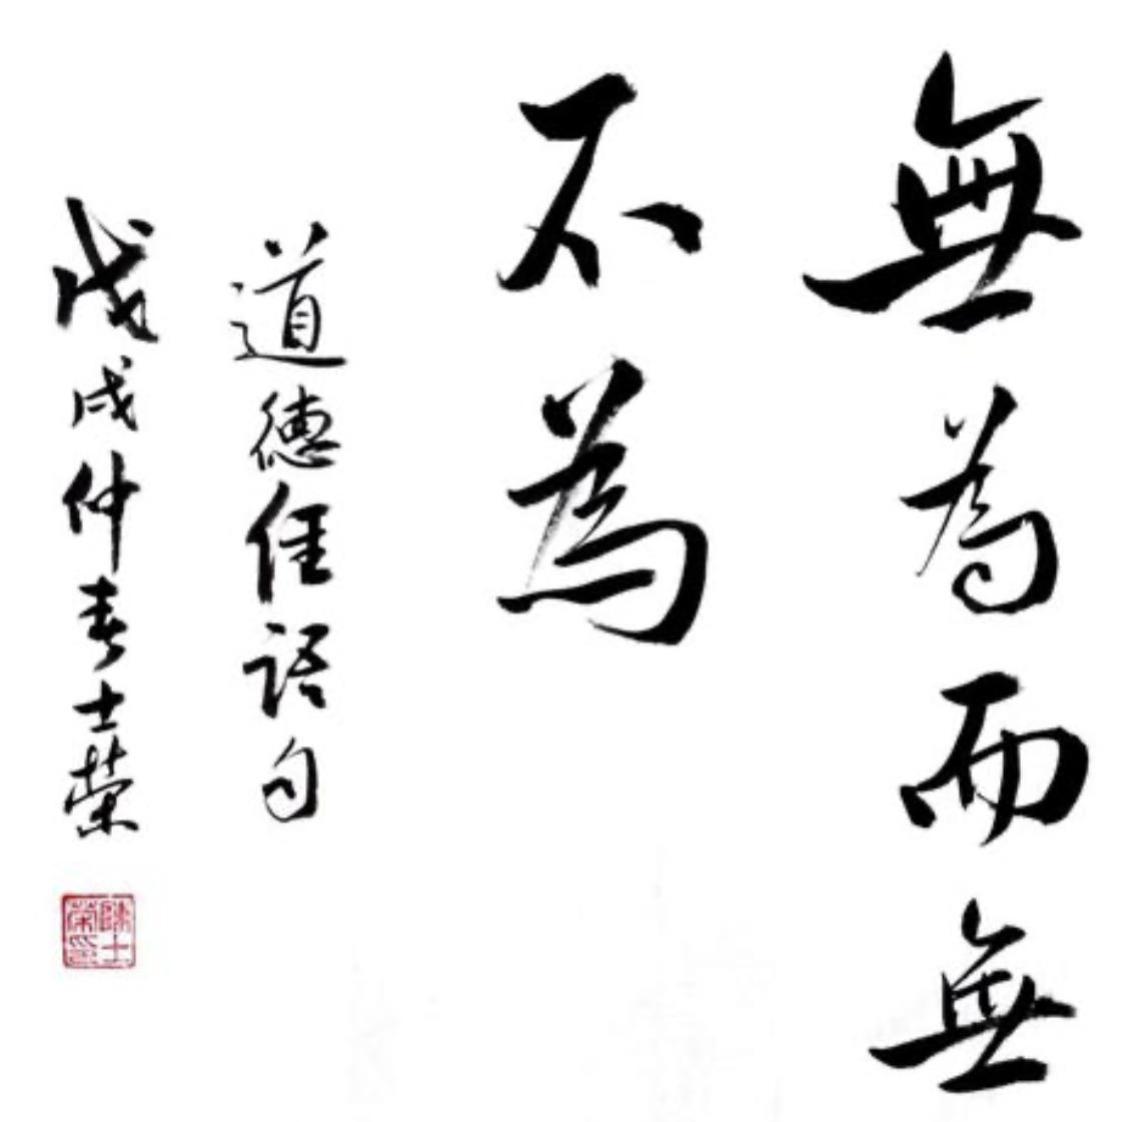 無為而無
不為
道德經語句
戊戌仲春士榮
陳士榮印